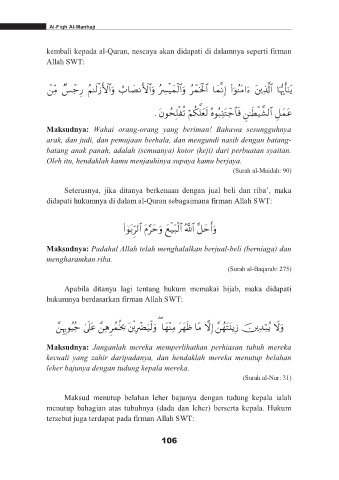 Al-Fiqh Al-Manhaji
kembali kepada al-Quran, nescaya akan didapati di dalamnya seperti firman
Allah SWT:
يَـٰٓأَيُّهَا ٱلَّذِينَ ءَامَنُوٓا۟ إِنَّمَا ٱلْخَمْرُ وَٱلْمَيْسِرُ وَٱلْأَنصَابُ وَٱلْأَزْلَـٰمُ رِجْسٌ مِّنْ
عَمَلِ ٱلشَّيْطَـٰنِ فَٱجْتَنِبُوهُ لَعَلَّكُمْ تُفْلِحُونَ .
Maksudnya: Wahai orang-orang yang beriman! Bahawa sesungguhnya
arak, dan judi, dan pemujaan berhala, dan mengundi nasib dengan batang-
batang anak panah, adalah (semuanya) kotor (keji) dari perbuatan syaitan.
Oleh itu, hendaklah kamu menjauhinya supaya kamu berjaya.
(Surah al-Maidah: 90)
Seterusnya, jika ditanya berkenaan dengan jual beli dan riba’, maka
didapati hukumnya di dalam al-Quran sebagaimana firman Allah SWT:
وَأَحَلَّ ٱللَّهُ ٱلْبَيْعَ وَحَرَّمَ ٱلرِّبَوٰا۟
Maksudnya: Padahal Allah telah menghalalkan berjual-beli (berniaga) dan
mengharamkan riba.
(Surah al-Baqarah: 275)
Apabila ditanya lagi tentang hukum memakai hijab, maka didapati
hukumnya berdasarkan firman Allah SWT:
وَلَا يُبْدِينَ زِينَتَهُنَّ إِلَّا مَا ظَهَرَ مِنْهَا ۖ وَلْيَضْرِبْنَ بِخُمُرِهِنَّ عَلَىٰ جُيُوبِهِنَّ
Maksudnya: Janganlah mereka memperlihatkan perhiasan tubuh mereka
kecuali yang zahir daripadanya, dan hendaklah mereka menutup belahan
leher bajunya dengan tudung kepala mereka.
(Surah al-Nur: 31)
Maksud menutup belahan leher bajunya dengan tudung kepala ialah
menutup bahagian atas tubuhnya (dada dan leher) berserta kepala. Hukum
tersebut juga terdapat pada firman Allah SWT:
106